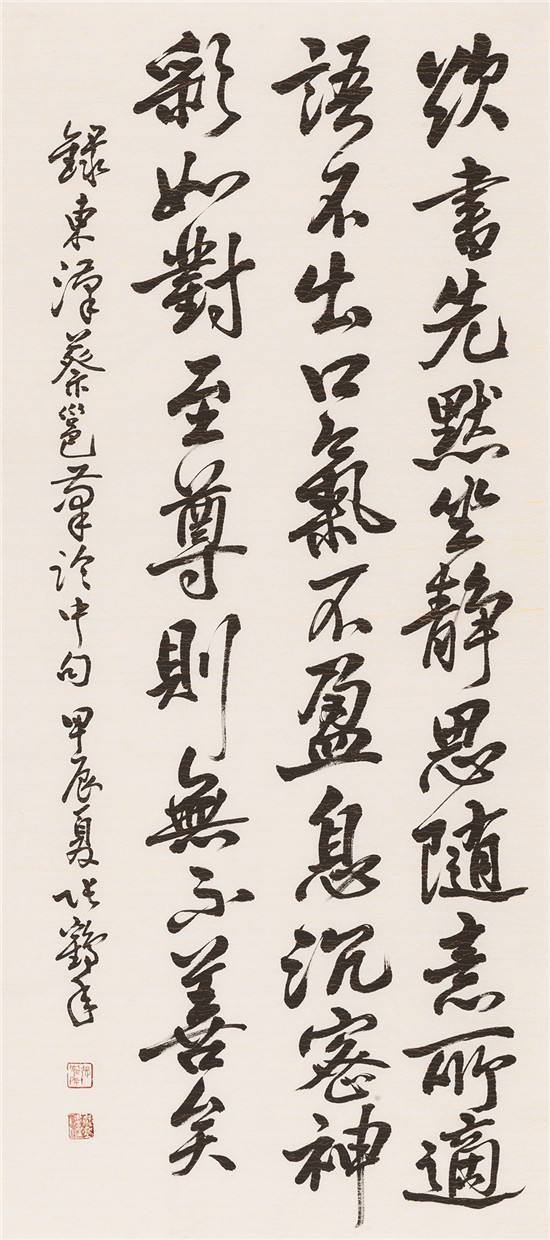 欲書先默坐靜思隨意所適
語不出口氣不盈息沉密神
彩如對至尊則無不善矣
錄東漢蔡邕筆論中句 甲辰夏 張鶴年